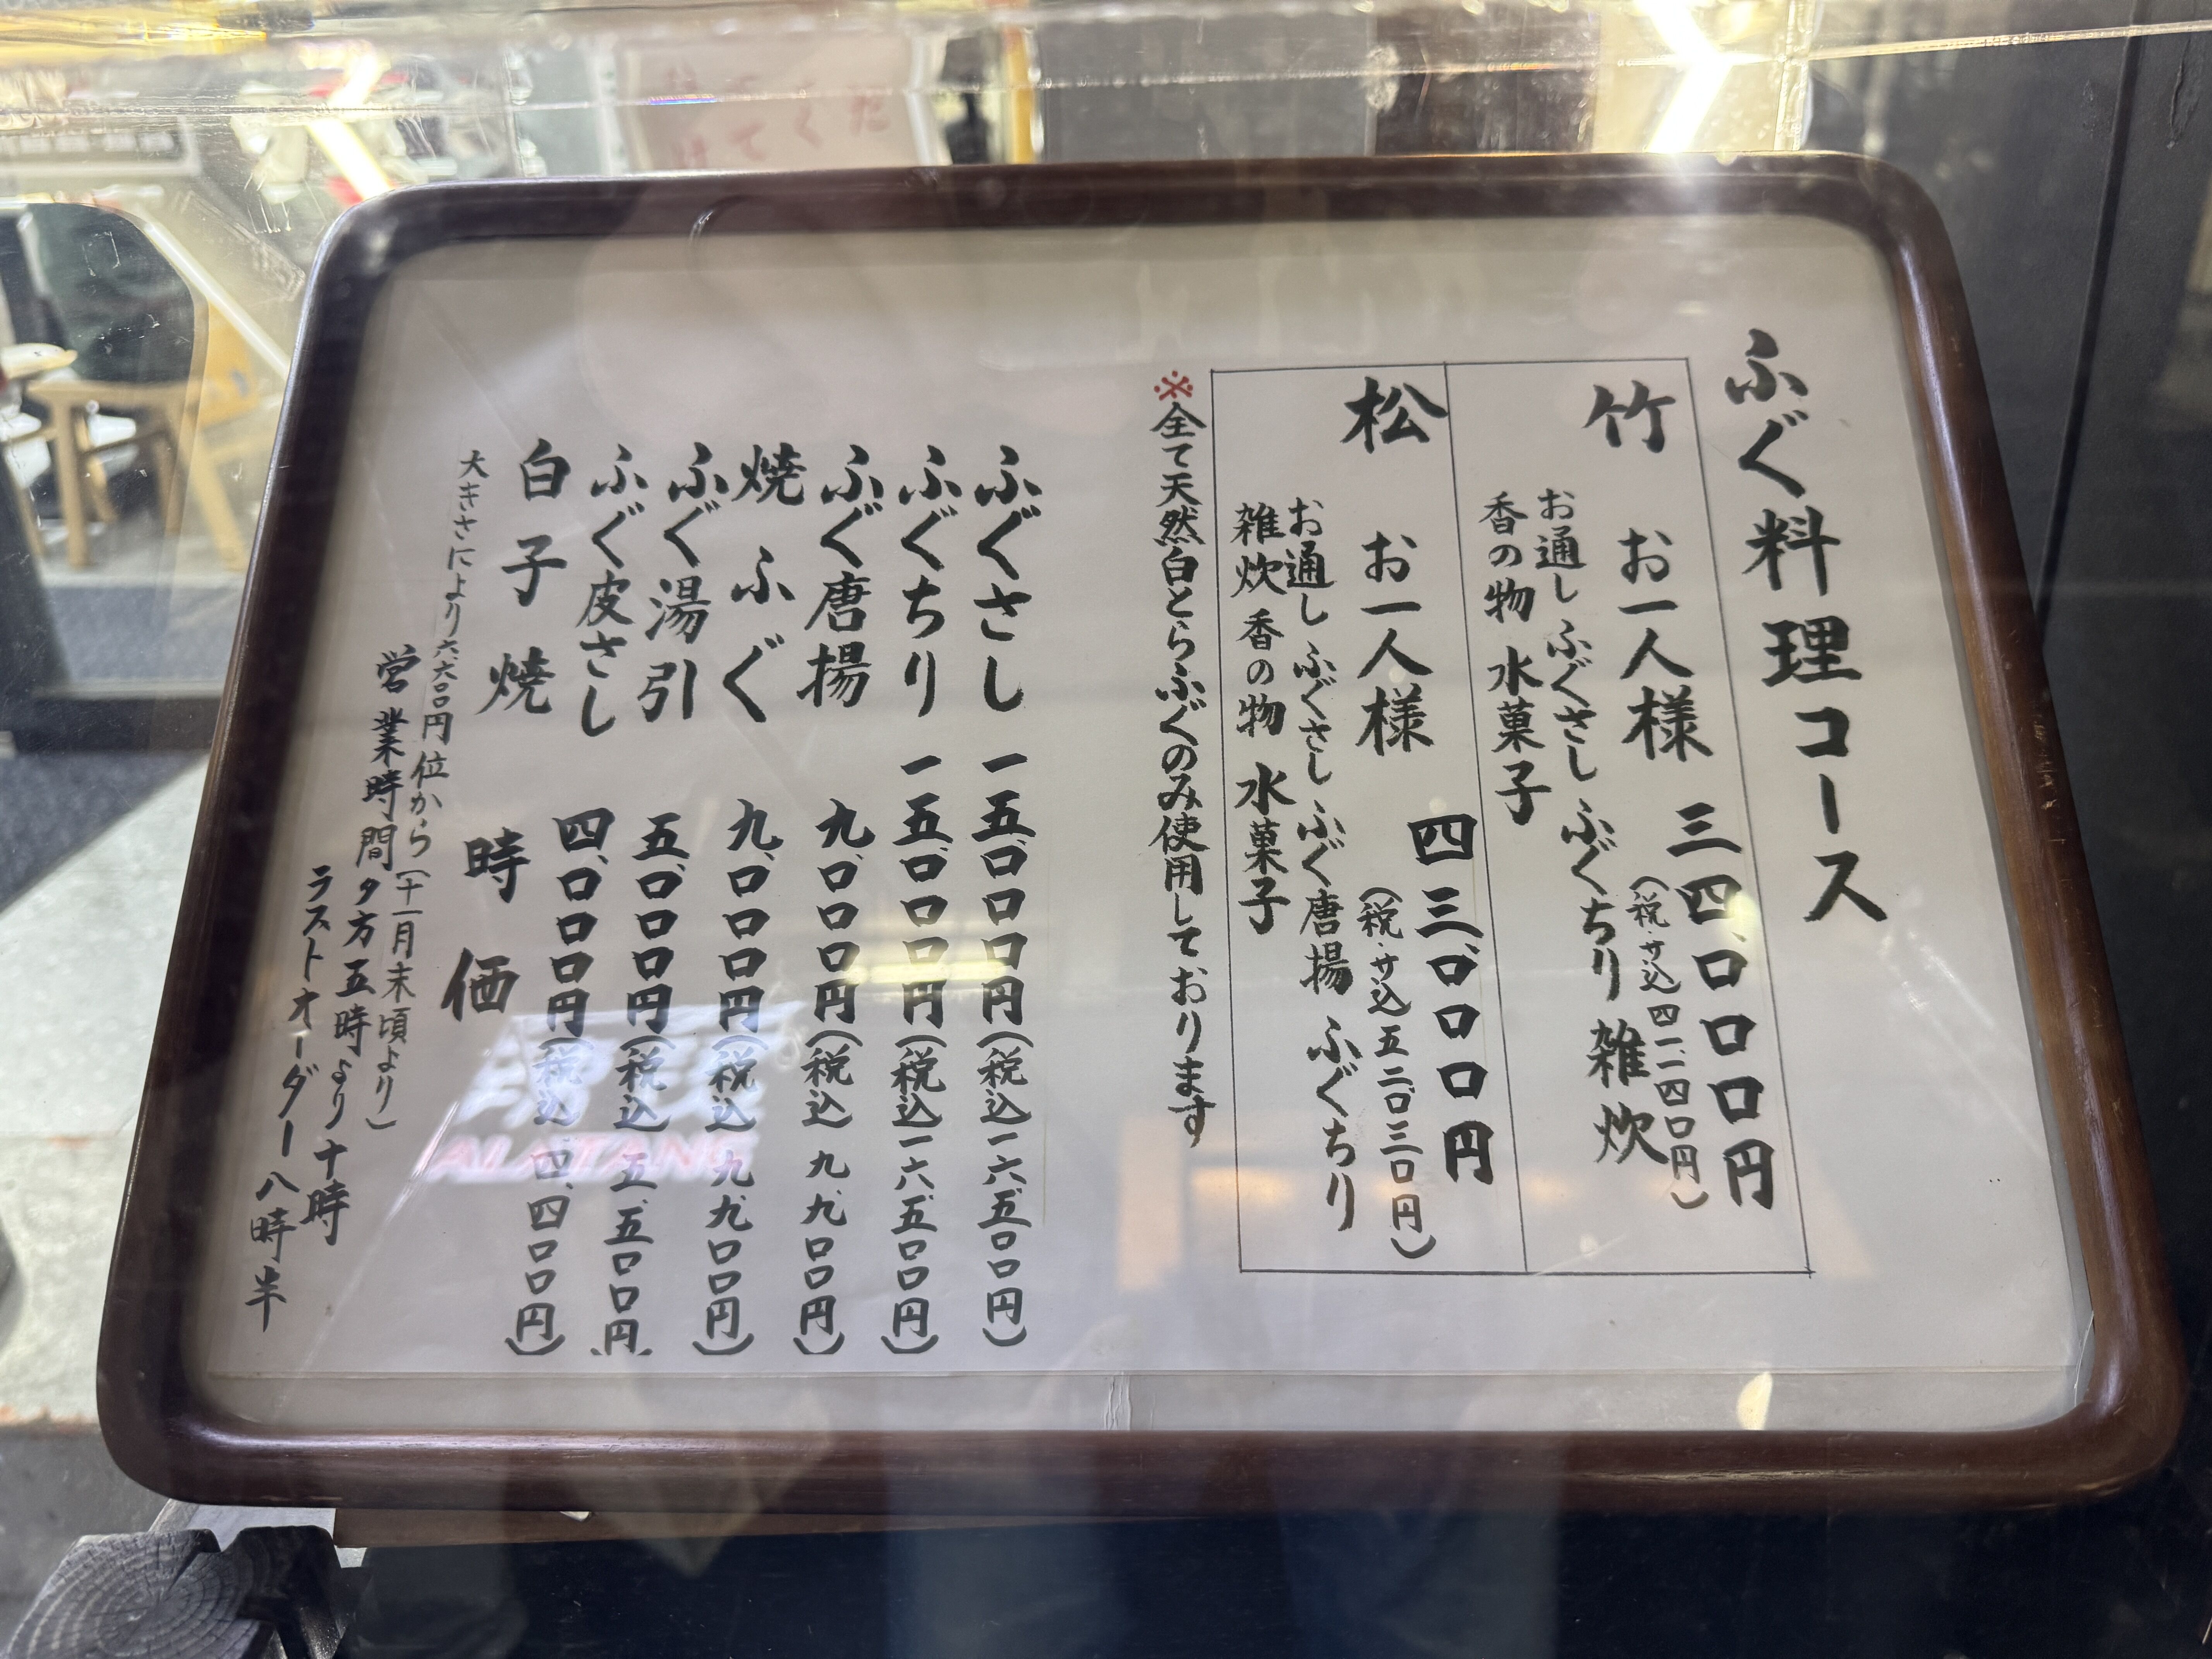 ふぐ料理コース
竹 お一人様 三四、〇〇〇円
(税・サ込 四一、一四〇円)
お通し ふぐさし ふぐちり 雑炊
香の物 水菓子
松 お一人様 四三、〇〇〇円
(税・サ込 五二、〇三〇円)
お通し ふぐさし ふぐ唐揚 ふぐちり
雑炊 香の物 水菓子
※全て天然白とらふぐのみ使用しております
ふぐさし 一五、〇〇〇円(税込 一六、五〇〇円)
ふぐちり 一五、〇〇〇円(税込 一六、五〇〇円)
ふぐ唐揚 九、〇〇〇円(税込 九、九〇〇円)
焼ふぐ 九、〇〇〇円(税込 九、九〇〇円)
ふぐ湯引 五、〇〇〇円(税込 五、五〇〇円)
ふぐ皮さし 四、〇〇〇円(税込 四、四〇〇円)
白子焼 時価
大きさにより六、六〇〇円位から(十一月末頃より)
営業時間 夕方五時より十時
ラストオーダー八時半